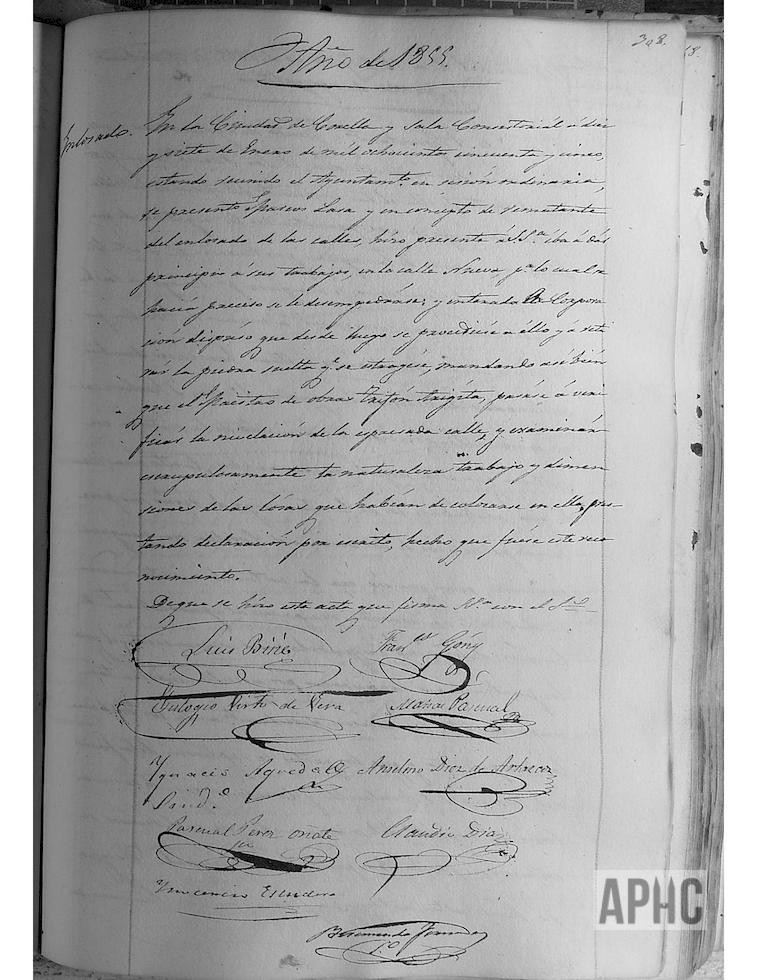 308.
18.
Año de 1855.
Enlosado.
En la Ciudad de Corella y Sala Consistorial á diez
y siete de Enero de mil ochocientos cincuenta y cinco,
estando reunido el Ayuntamto. en sesión ordinaria,
se presentó Marcos Lasa y en concepto de rematante
del enlosado de las calles, hizo presente á S.Sa. iba á dar
principio á sus trabajos, en la calle Nueva, pa. lo cual se
hacía preciso se le desempedráse; y enterada la Corpora
ción dispuso que desde luego se procediése a ello y á reti
rar la piedra suelta qe. se estragése, mandando asi bién
que el Maestro de obras Trifón, pasáse á veri
ficar la nivelación de la espresada calle, y examinár
escrupulosamente la naturaleza trabajo y dimen
siones de las lósas que habían de colocarse en ella, pres-
tando declaración por escrito, hecho que fuése este reco
nocimiento.
De que se hizo esta acta que firma S.Sa. con el Srio.
Luis Biñes
Franco. Goñy
Eulogio Virto de Vera
Pascual
Ygnacio Agueda
Anselmo Diez de Arbizar
Sindo.
Pascual Perez Oñate
Claudio Diaz
Ynocencio Escudero
Fernandez